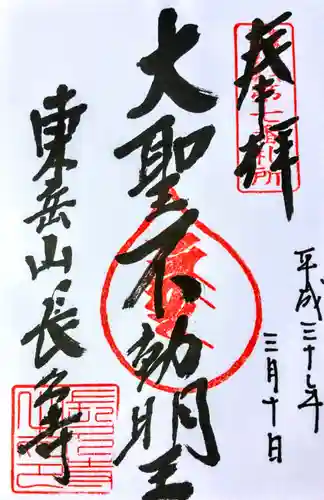 奉拝
平成三十年
三月十日
大聖不動明王
東岳山長久寺